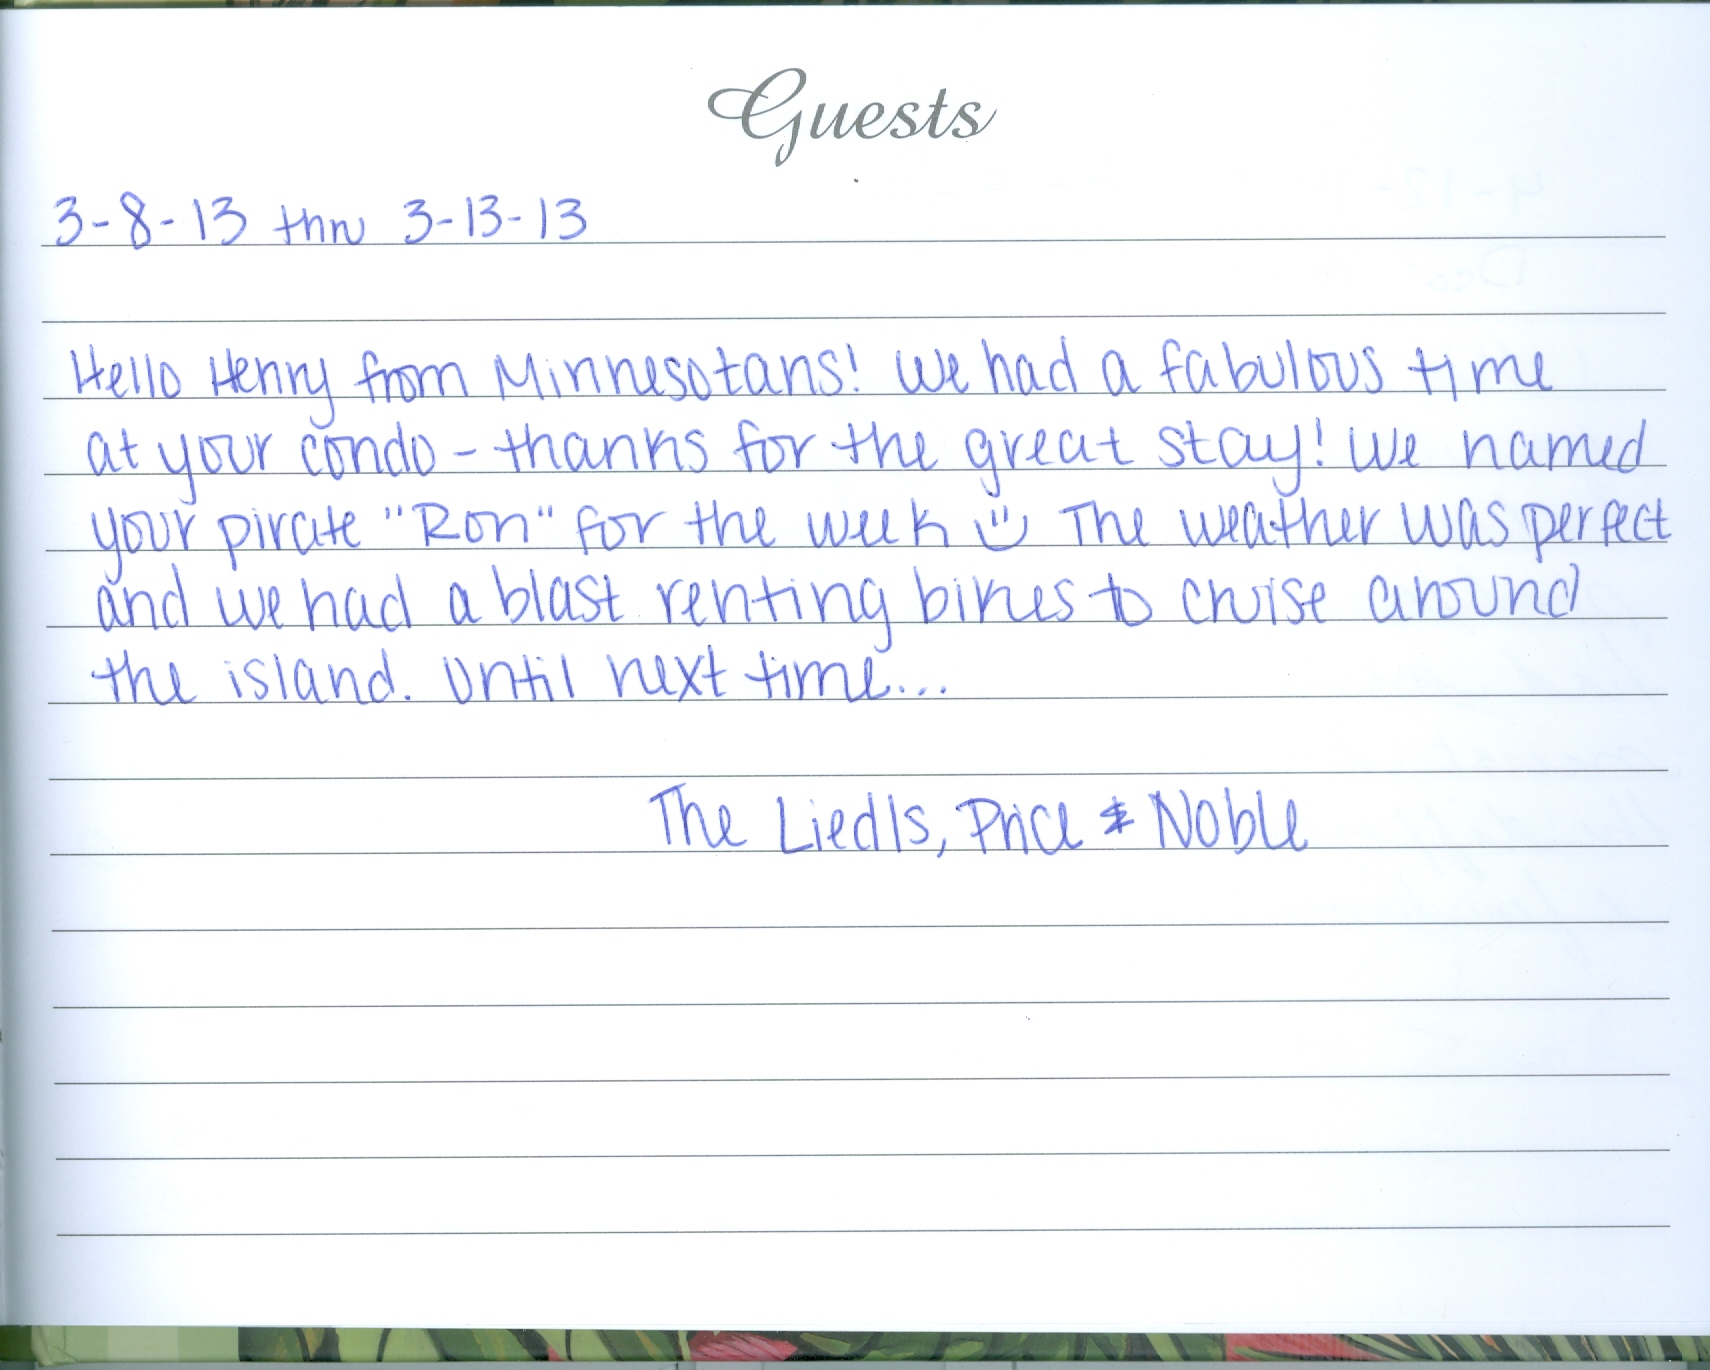 Guests
3-8-13 thru 3-13-13
Hello Henry from Minnesotans! We had a fabulous time
at your condo - thanks for the great stay! We named
your pirate "Ron" for the week :) The weather was perfect
and we had a blast renting bikes to cruise around
the island. Until next time...
The Liedls, Price & Noble